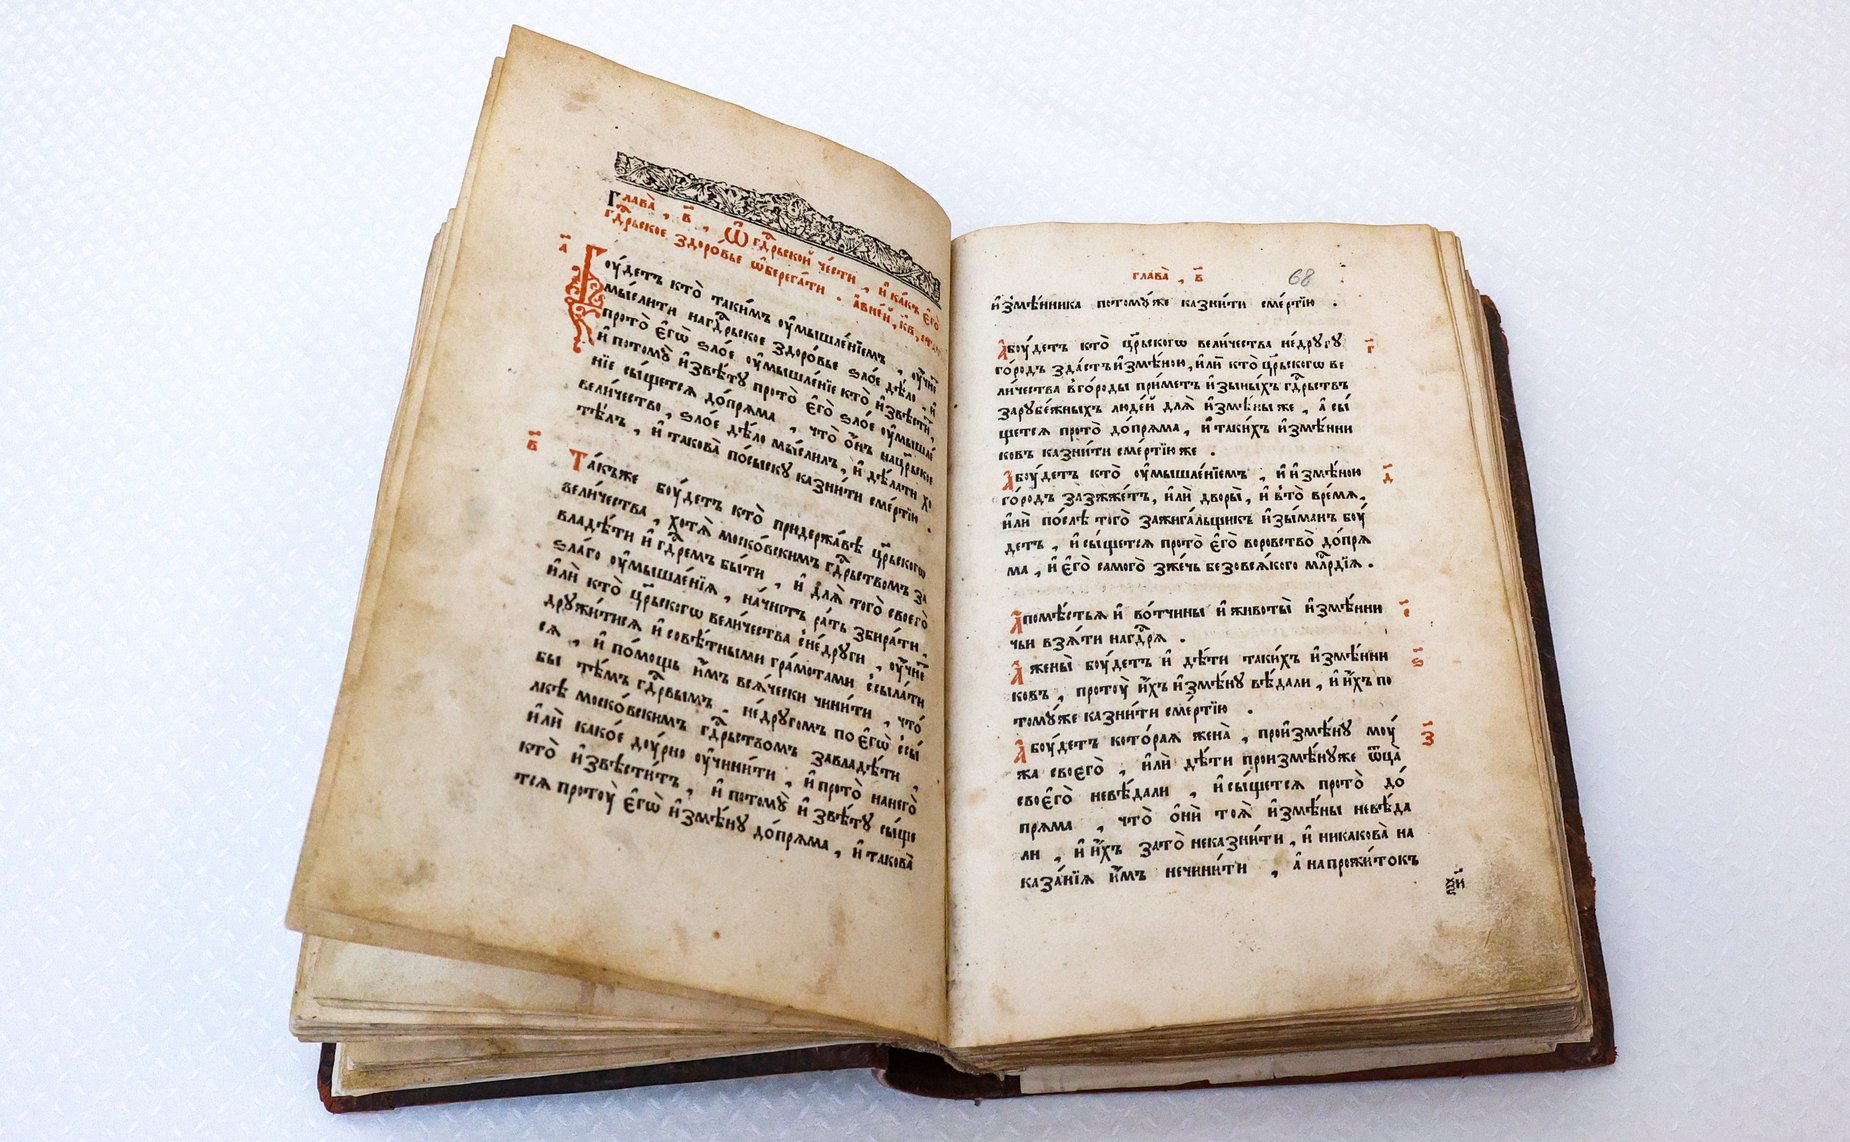 Глава̀, в҃. Ѡ гдⷭ҇рьской че́сти, и҆ ка́къ є҆го̀
гдⷭ҇рьское здоро́вье ѡ҆берега́ти. а҆ в не́й, кв҃, статьи
а҃
Бꙋ́детъ кто̀ таки́мъ ᲂу҆мышле́нїемъ, ᲂу҆чне́тъ
мы́слити на гдⷭ҇рьское здоро́вье ѕло́е дѣ́ло, и҆
про то̀ є҆гѡ̀ ѕло́е ᲂу҆мышле́нїе кто̀ и҆звѣсти́тъ,
и҆ по томꙋ̀ и҆звѣ́тꙋ про то̀ є҆го̀ ѕло́е ᲂу҆мышле́
нїе сы́щется до́пряма, что̀ ѻ҆́нъ на црⷭ҇ьское
вели́чество, ѕло́е дѣ́ло мы́слилъ, и҆ дѣ́лати хо
тѣ́лъ, и҆ такова̀ по сы́скꙋ казни́ти сме́ртїю.
в҃
Та́къже бꙋ́детъ кто̀ при держа́вѣ црⷭ҇ьскогѡ
вели́чества, хотѧ̀ моско́вскимъ гдⷭ҇рьствомъ за
владѣ́ти и҆ гдⷭ҇ремъ бы́ти, и҆ для̀ того̀ своего̀
ѕла́го ᲂу҆мышле́нїя, на́чнетъ ра́ть збира́ти,
и҆лѝ кто̀ црⷭ҇ьскогѡ вели́чества с не́други, ᲂу҆чне́тъ
дрꙋжи́тися и҆ совѣ́тными гра́мотами ссыла́ти
ся, и҆ по́мощь и҆̀мъ вся́чески чини́ти, что́
бы тѣ́мъ гдⷭ҇рвымъ, не́дрꙋгомъ по є҆гѡ̀ ссы́
лкѣ моско́вскимъ гдⷭ҇рьствомъ завладѣ́ти,
и҆лѝ како́е дꙋ́рно ᲂу҆чини́ти, и҆ про то̀ на него̀
кто̀ и҆звѣсти́тъ, и҆ по томꙋ̀ и҆звѣ́тꙋ сы́ще
тся про тꙋ̀ є҆гѡ̀ и҆змѣ́нꙋ до́пряма, и҆ такова̀
глава̀, в҃
68
и҆змѣ́нника потомꙋ́же казни́ти сме́ртїю.
А҆ бꙋ́детъ кто̀ црⷭ҇ьскогѡ вели́чества не́дрꙋгꙋ
г҃
го́родъ зда́стъ и҆змѣ́ною, и҆лѝ кто̀ црⷭ҇ьскогѡ ве
ли́чества в го́роды при́метъ и҆з ы́ныхъ гдⷭ҇рьствъ
зарꙋбе́жныхъ люде́й для̀ и҆змѣ́ны же, а҆ сы́
щется про то̀ до́пряма, и҆ таки́хъ и҆змѣ́нни
ковъ казни́ти сме́ртїю же.
А҆ бꙋ́детъ кто̀ ᲂу҆мышле́нїемъ, и҆ и҆змѣ́ною
д҃
го́родъ зазжже́тъ, и҆лѝ дворы̀, и҆ в то̀ вре́мя,
и҆лѝ по́слѣ того̀ зажига́льщикъ и҆зы́манъ бꙋ́
детъ, и҆ сы́щется про то̀ є҆го̀ воровство̀ до́пря
ма, и҆ є҆го̀ самого̀ зже́чь безо вся́кого млⷭ҇рдїя.
А҆ помѣ́стья и҆ во́тчины и҆ животы̀ и҆змѣ́нни
є҃
чьи взя́ти на гдⷭ҇ря.
А҆ жены̀ бꙋ́детъ и҆ дѣ́ти таки́хъ и҆змѣ́нни
ѕ҃
ковъ, про тꙋ̀ и҆́хъ и҆змѣ́нꙋ вѣ́дали, и҆ и҆́хъ по
томꙋ́же казни́ти сме́ртїю.
А҆ бꙋ́детъ кото́рая жена̀, про и҆змѣ́нꙋ мꙋ́
з҃
жа своє҆го̀, и҆лѝ дѣ́ти про измѣ́нꙋже ѿца̀
своє҆го̀ не вѣ́дали, и҆ сы́щется про то̀ до́
пряма, что̀ ѻ҆нѝ тоя̀ и҆змѣ́ны не вѣ́да
ли, и҆ и҆́хъ за то̀ не казни́ти, и҆ никакова̀ на
каза́нїя и҆̀мъ не чини́ти, а҆ на прожи́токъ